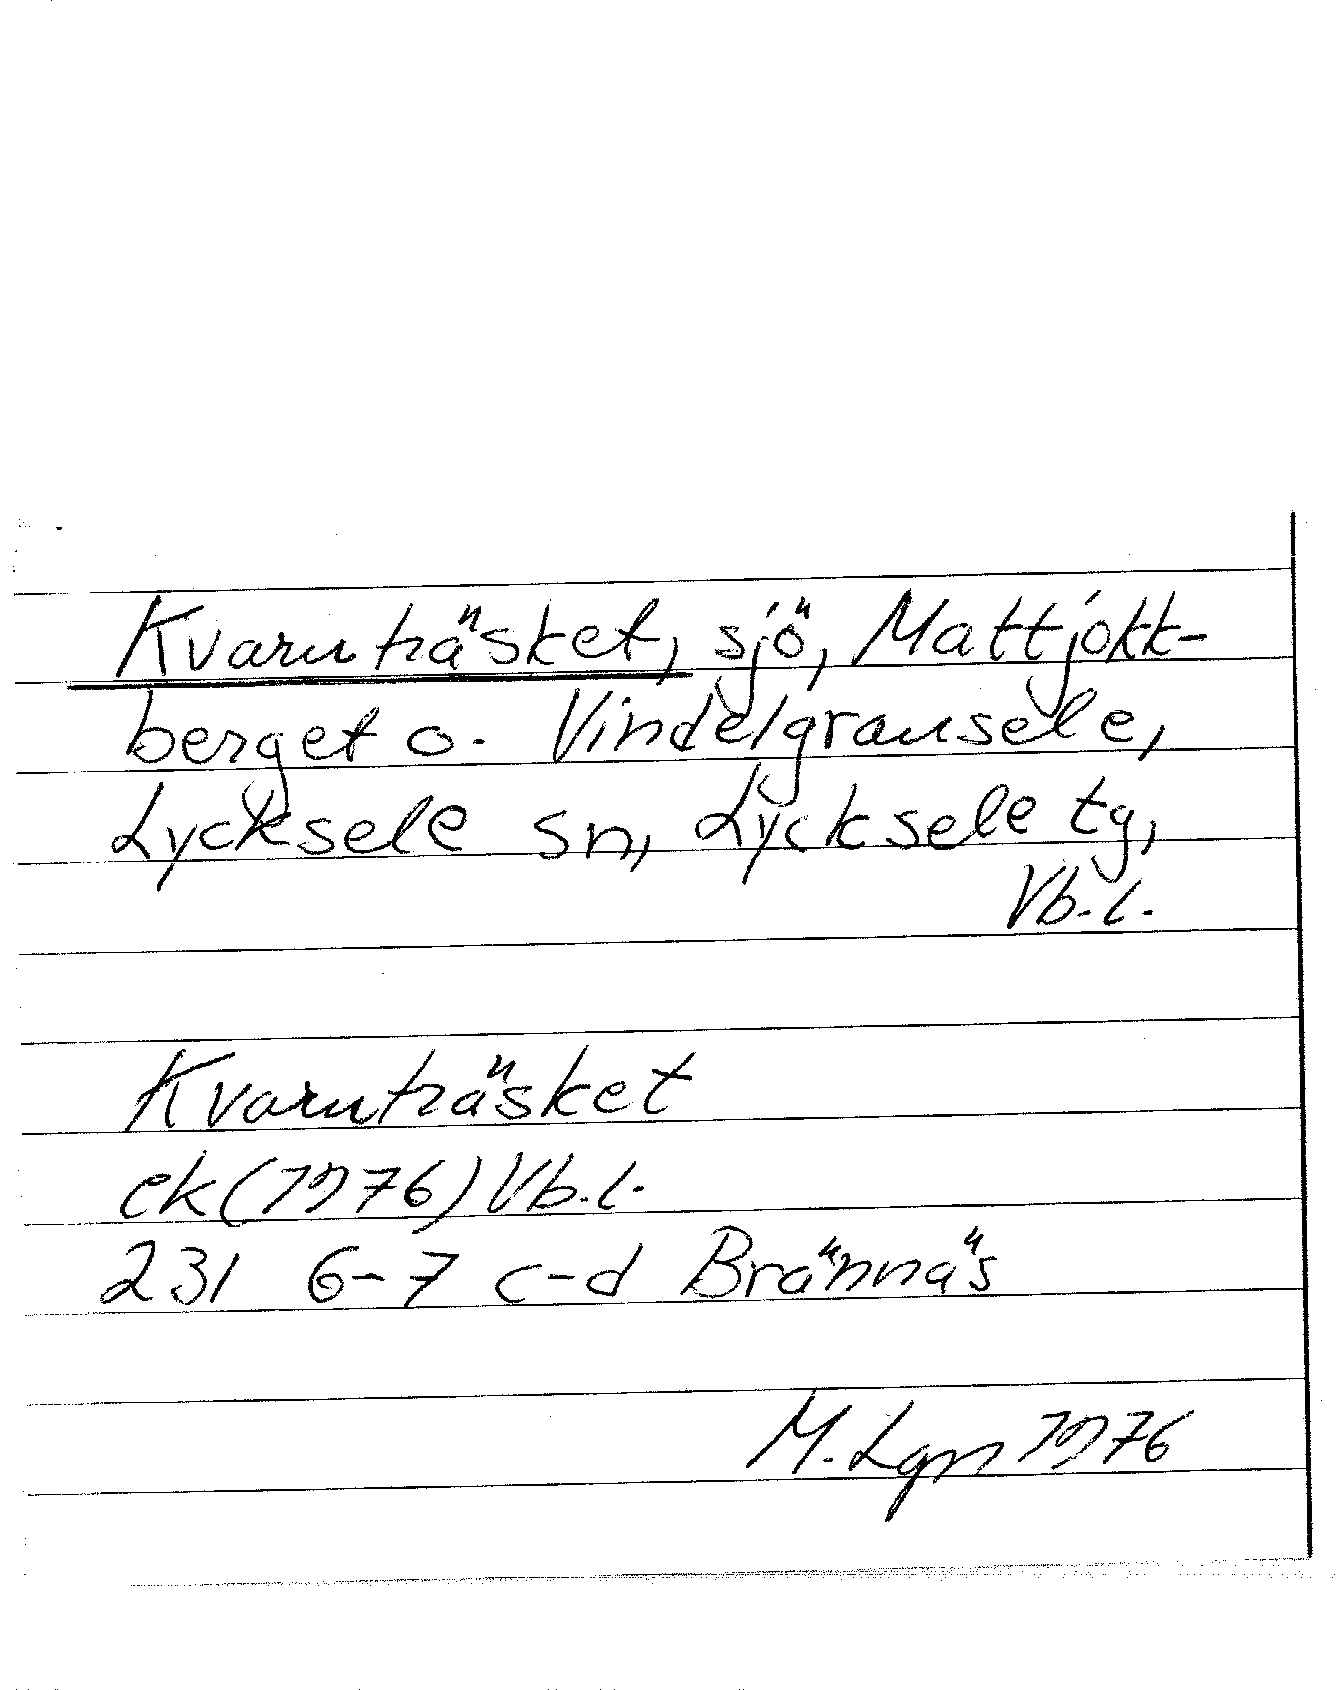 Kvarnträsket, sjö, Mattjokk-
berget o. Vindelgransele,
Lycksele sn, Lycksele tg,
Vb.l.
Kvarnträsket
ek (1976) Vb.l.
231 6-7 c-d Brännäs
M. Lgn 1976